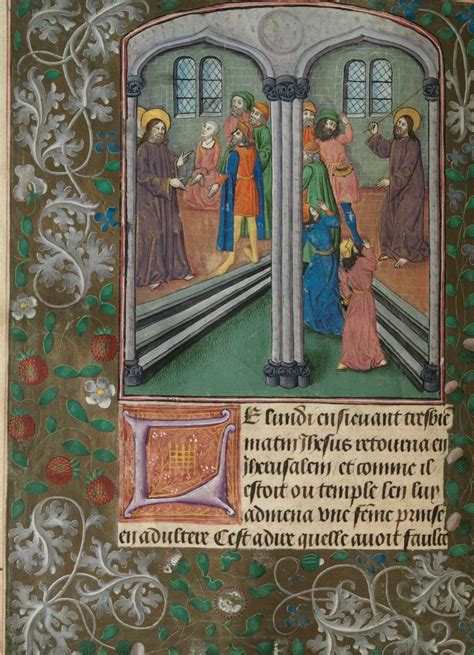 LE lundi ensieuant tresbie
matin Jhesus retourna en
Jherusalem et comme il
estoit ou temple len luy
admena vne fēme prinse
en adultere Cest adire quelle auoit faulse